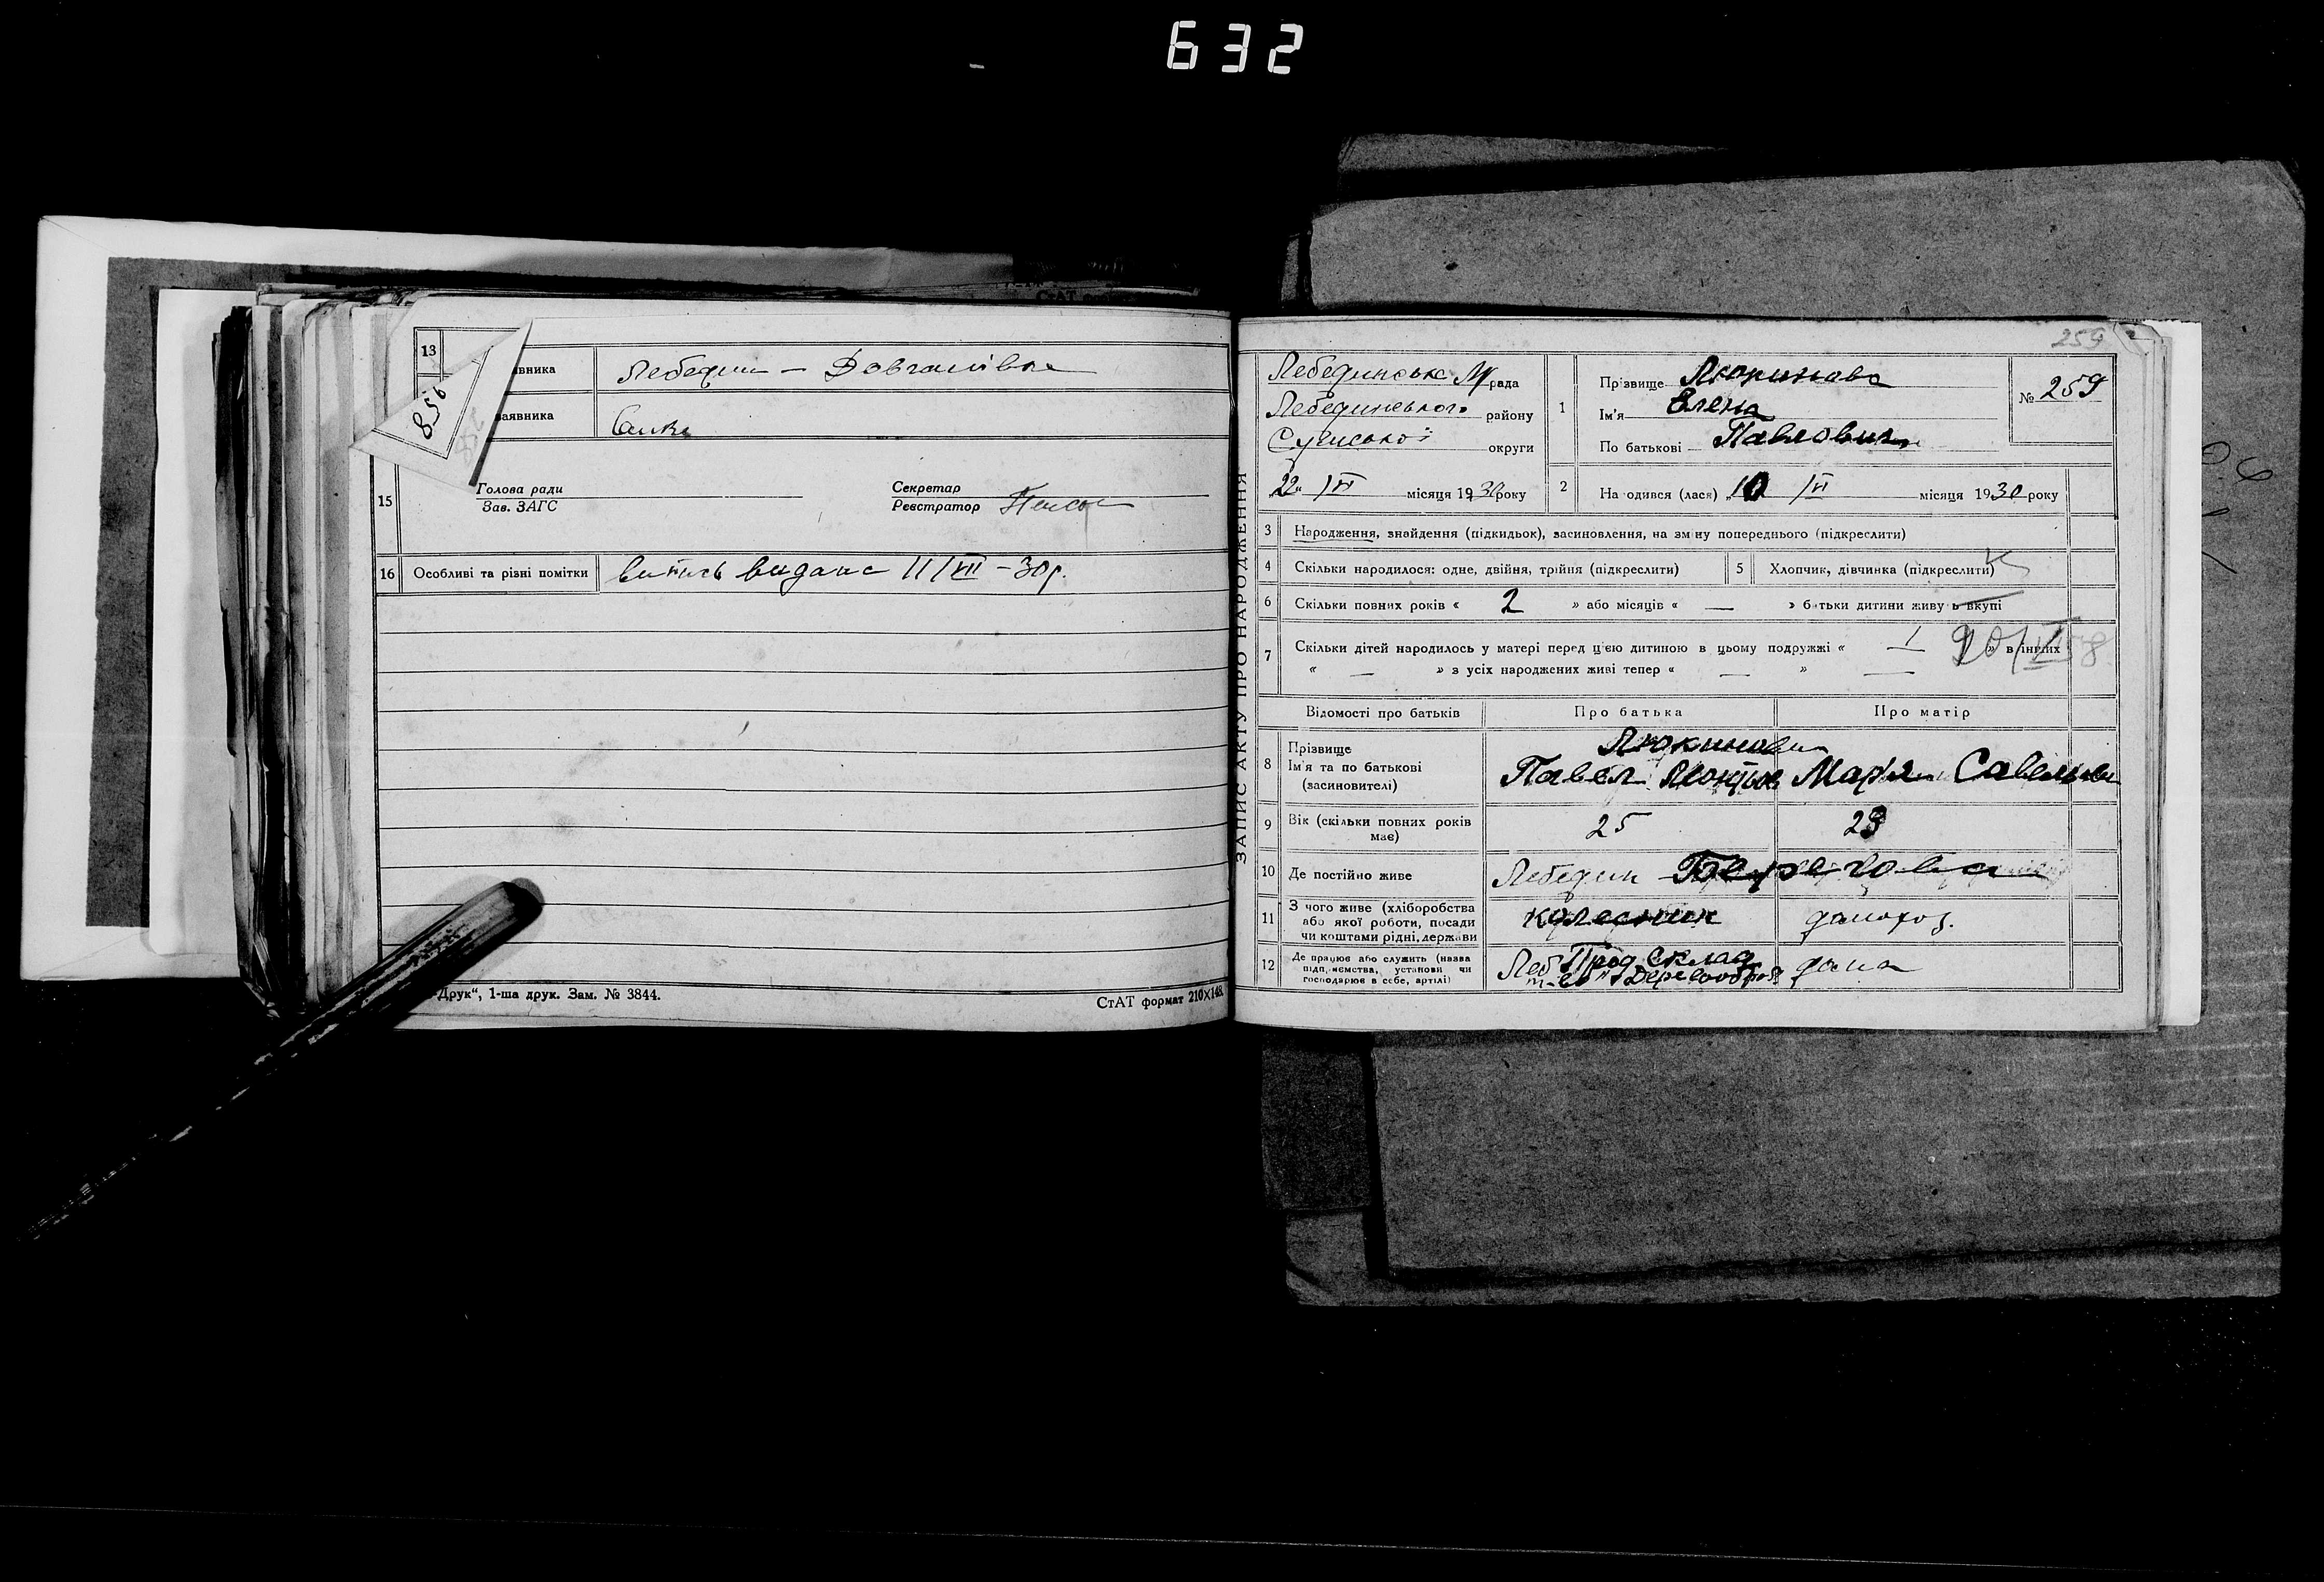 632
13
явника
Лебедин – Довгалівка
850
заявника
15
Голова ради
Зав. ЗАГС
Секретар
Реєстратор
16
Особливі та різні помітки
випись видана 11/VII – 30 р.
Друк“, 1-ша друк. Зам. № 3844.
СтАТ формат 210×148.
ЗАПИС АКТУ ПРО НАРОДЖЕННЯ
259
Лебединська М рада
Лебединського району
Сумської округи
22 " місяця 1930 року
1
Прізвище
Ім'я Елена
По батькові
№ 259
2
Народився (лася) „10 місяця 1930 року
3
Народження, знайдення (підкидьок), засиновлення, на зміну попереднього (підкреслити)
4
Скільки народилося: одне, двійня, трійня (підкреслити)
5
Хлопчик, дівчинка (підкреслити)
6
Скільки повних років « 2 » або місяців « — » батьки дитини живуть вкупі
7
Скільки дітей народилось у матері перед цією дитиною в цьому подружжі « 1 » в інших
« — » з усіх народжених живі тепер « — » —
Відомості про батьків
Про батька
Про матір
8
Прізвище
Ім'я та по батькові
(засиновителі)
Павел
Мария
9
Вік (скільки повних років має)
25
10
Де постійно живе
Лебедин
11
З чого живе (хліборобства
або якої роботи, посади
чи коштами рідні, держави
колесник
домохоз.
12
Де працює або служить (назва
підприємства, установи чи
господарює в себе, артілі)
Леб Прод. склад
дома